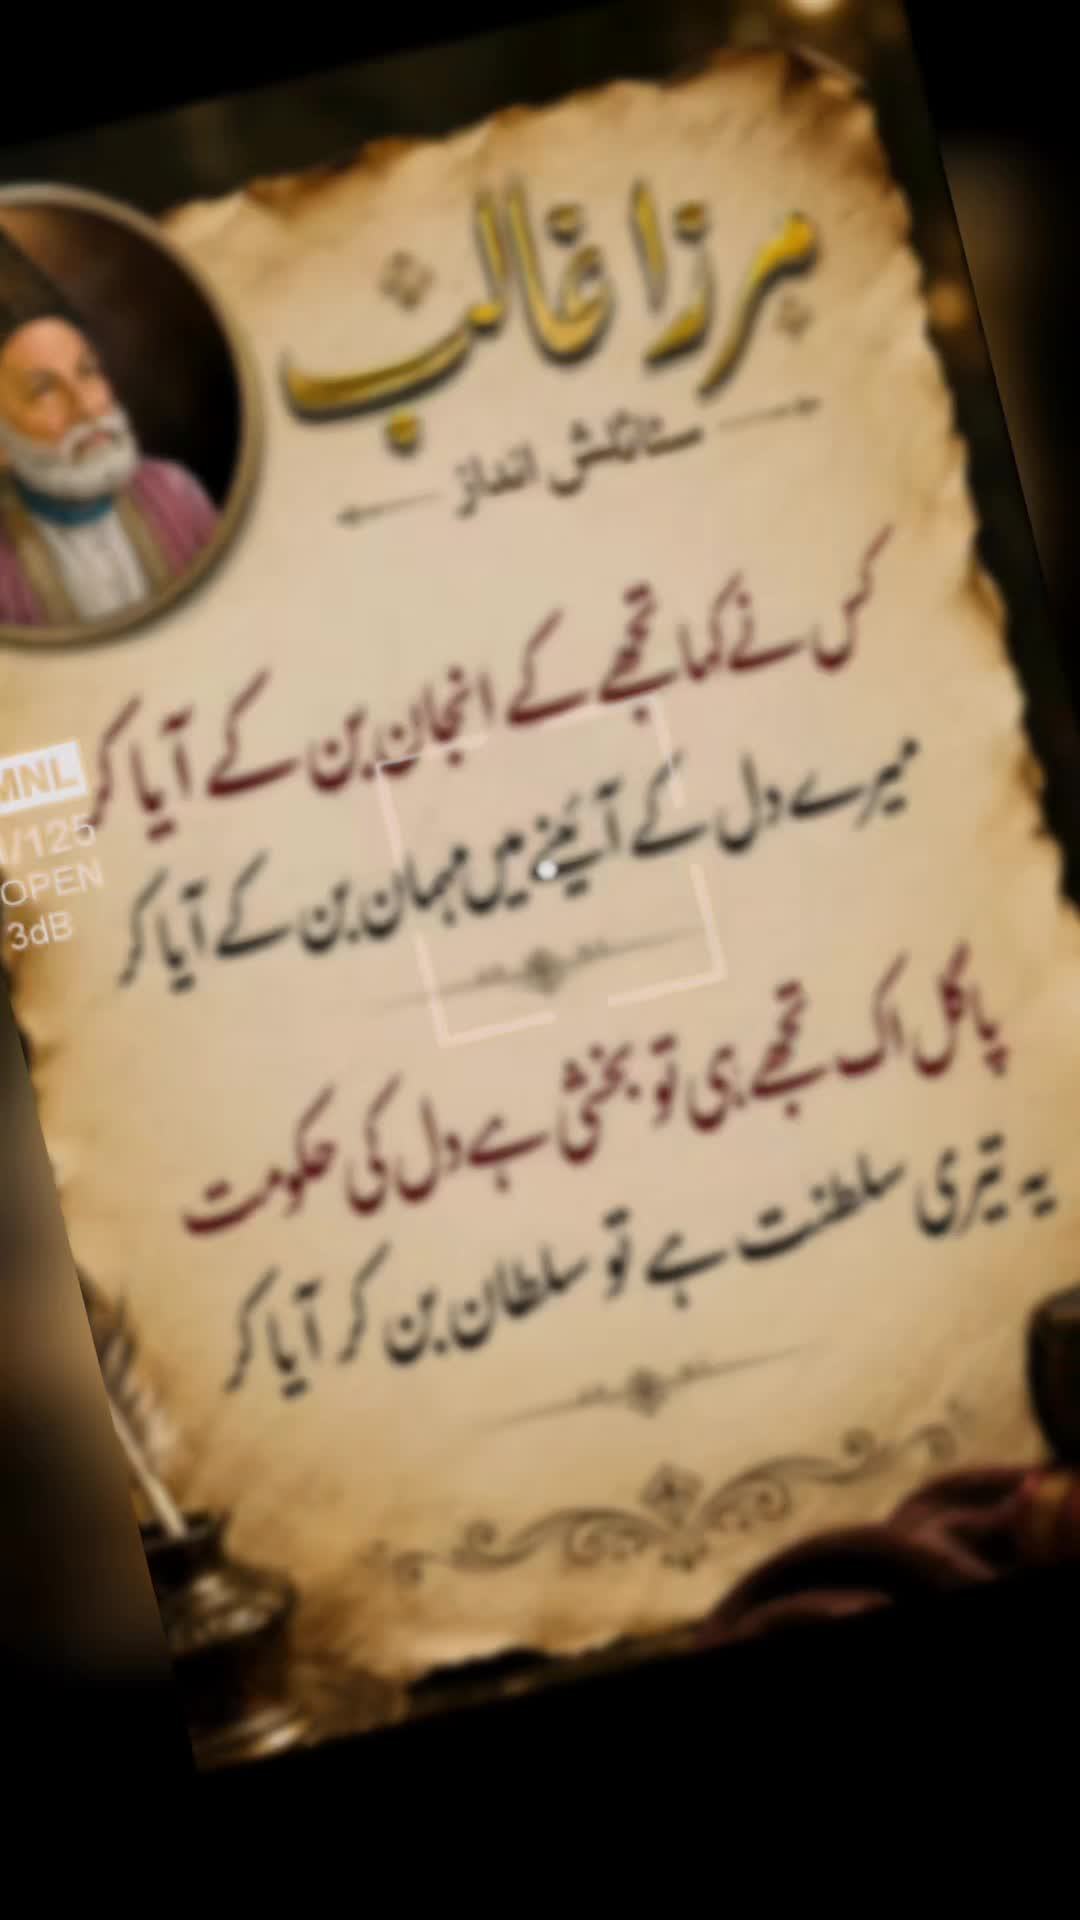 مرزا غالب
ستائش انداز
کس نے کہا تجھے کے انجان بن کے آیا کر
میرے دل کے آئینے میں مہان بن کے آیا کر
پاگل اک تجھے ہی تو بخشی ہے دل کی حکومت
یہ تیری سلطنت ہے تو سلطان بن کر آیا کر
MNL
1/125
OPEN
3dB